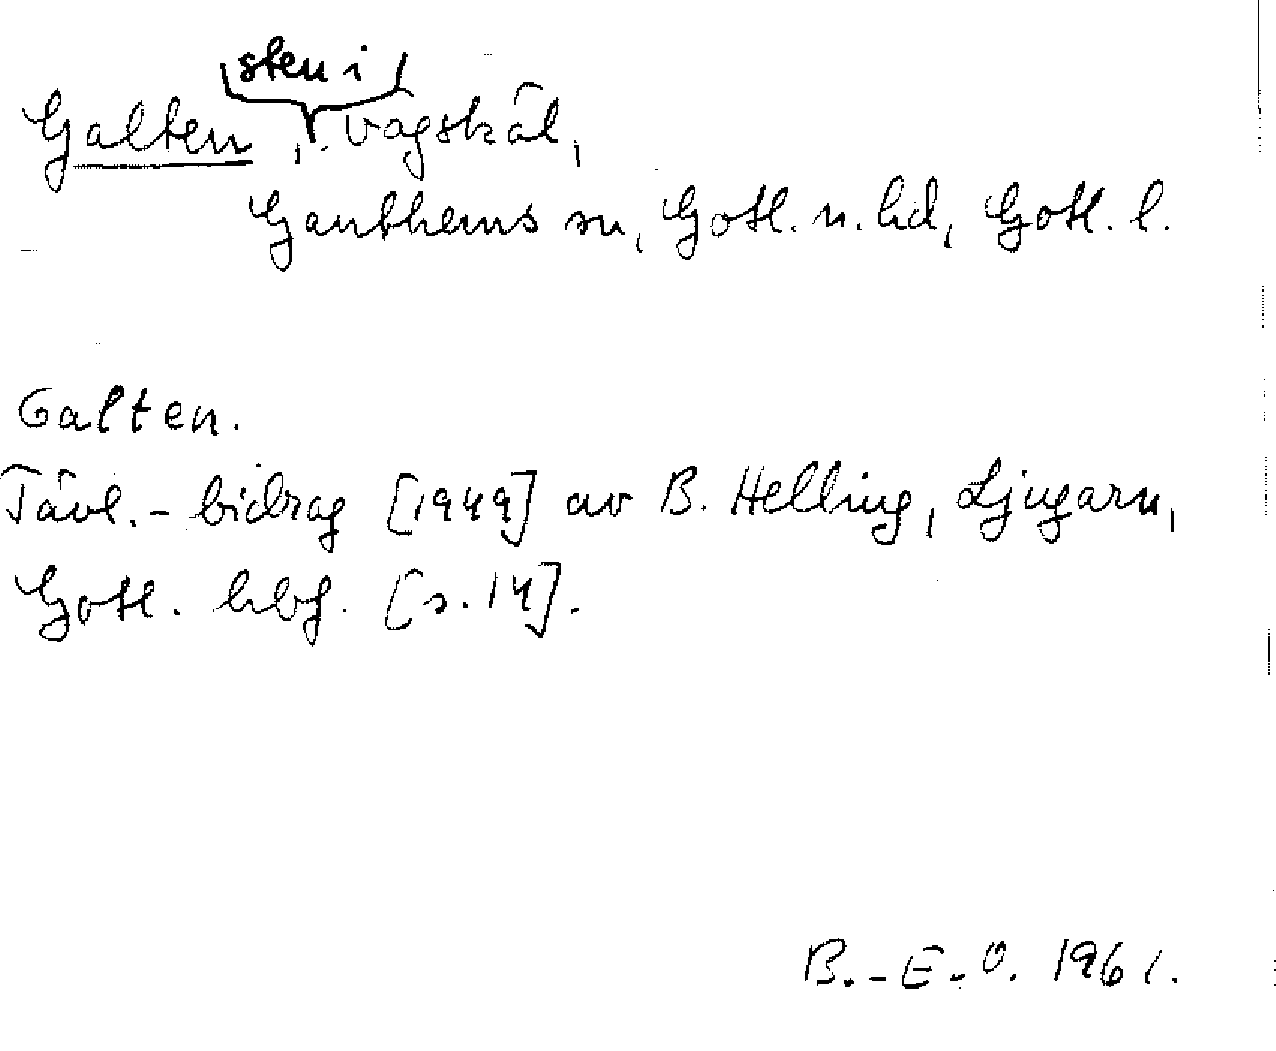 sten i
Galten, vägskäl,
Ganthems sn, Gotl. n. hd, Gotl. l.
Galten.
Tävl.-bidrag [1949] av B. Helling, Ljugarn,
Gotl. hbf. [s. 14].
B.-E. O. 1961.